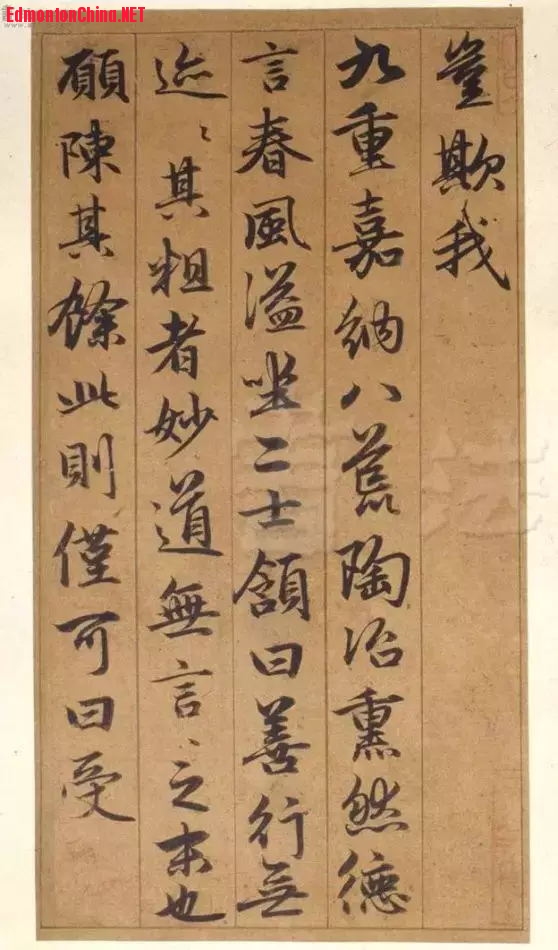 EdmontonChina.NET
豈欺我
九重嘉納八荒陶冶熏然德
言春風溢坐二士頷曰善行無
迹〻其粗者妙道無言〻之末也
願陳其餘此則僅可曰受